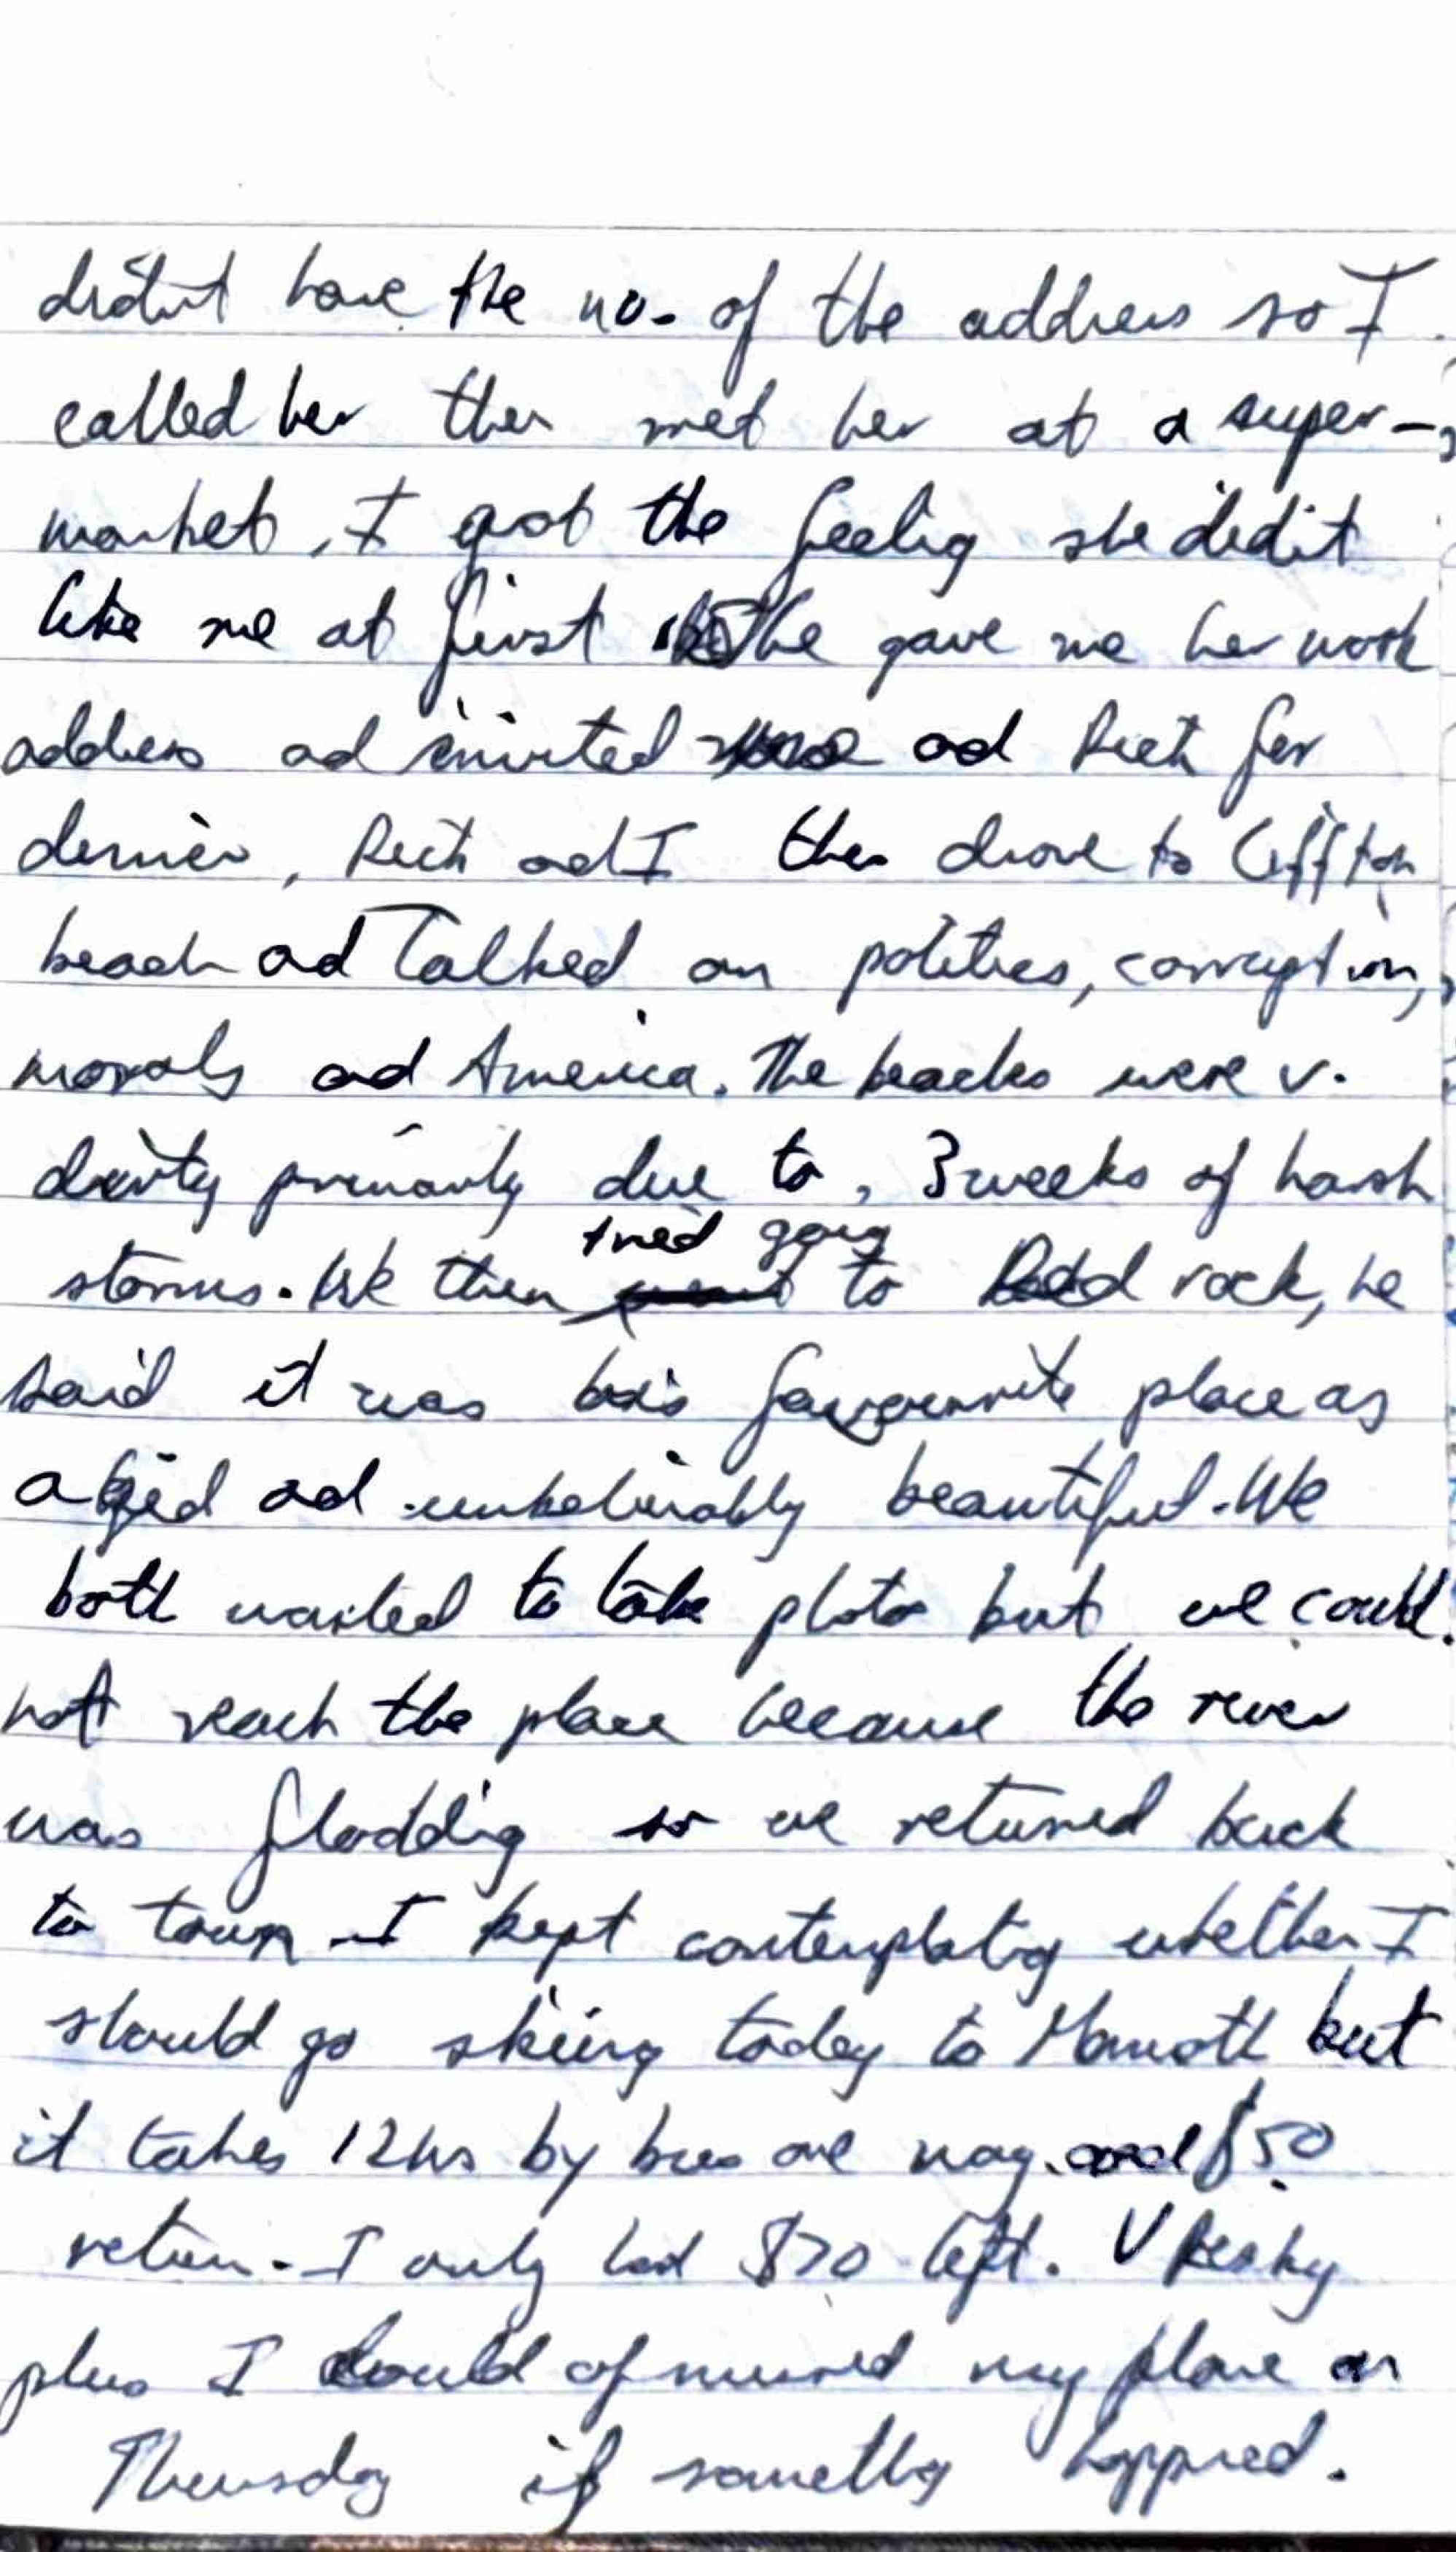 didn't have the no. of the address so I
called her then met her at a super-
market, I got the feelig she did'it
like me at first she gave me her work
address ad invited me ad Rich for
dinner, Rich ad I then drove to Cliffton
beach ad Talked on politics, corruption,
morals ad America. The beaches were v.
dirty primarily due to, 3 weeks of harsh
storms. We then tried going to Red rock, he
said it was his favourite place as
a kid ad unbelievably beautiful. We
both wanted to take photos but we could
not reach the place because the river
was floodding so we returned back
to town I kept contemplatig whether I
should go skiing today to Mamoth but
it takes 12 hrs by bus one way. and $50
return. I only had $70 left. V Risky
plus I could of missed my plane on
Thursday if somethig happned.